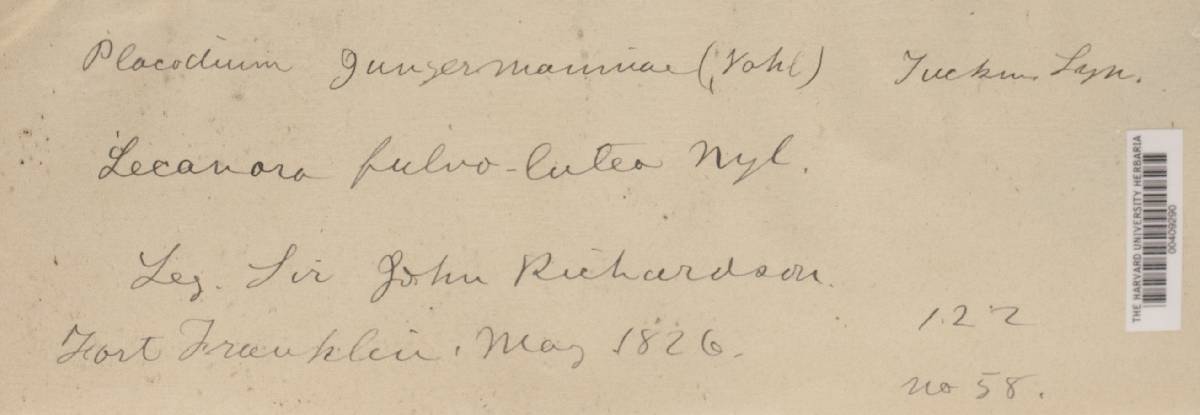 Placodium Jungermanniae (Vahl) Tuckm. Syn.
Lecanora fulvo-lutea Nyl.
Leg. Sir John Richardson.
Fort Franklin. May 1826.
122
no 58.
THE HARVARD UNIVERSITY HERBARIA
00409290